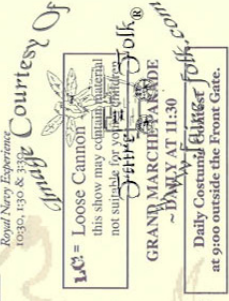 Royal Navy Experience
10:30, 1:30 & 3:30
Image Courtesy Of
L.C. = Loose Cannon
this show may contain material
not suitable for young children
Faire Folk®
GRAND MARCHE PARADE
~ DAILY AT 11:30
Daily Costume Contest
at 9:00 outside the Front Gate.